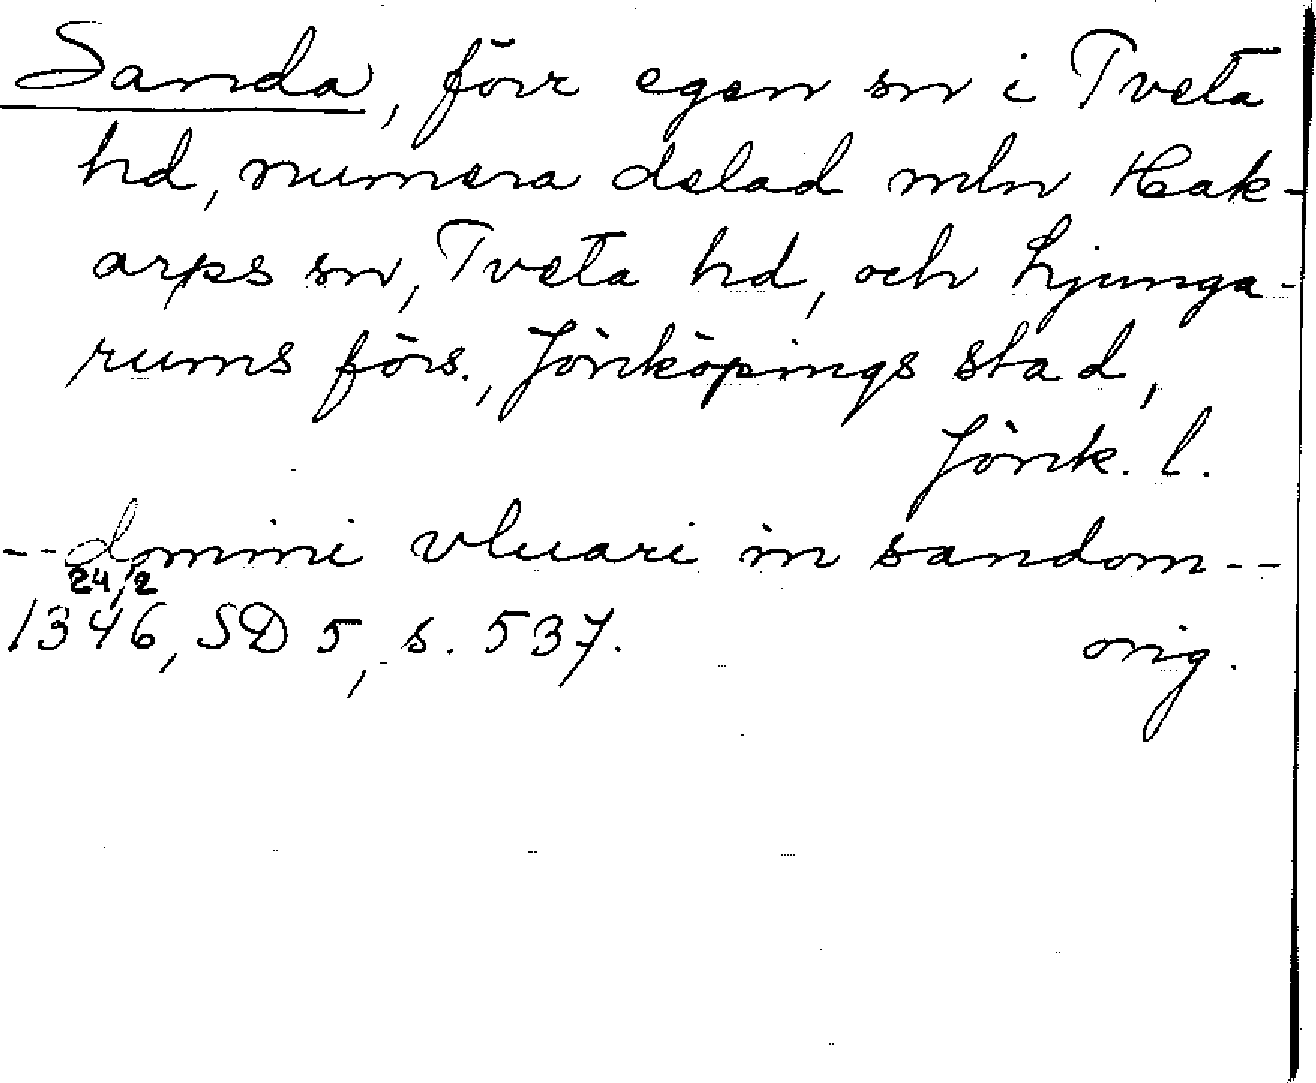 Sanda, förr egen sn i Tveta
hd, numera delad mln Hak-
arps sn, Tveta hd, och Ljunga-
rums förs., Jönköpings stad,
Jönk. l.
-- domini vluari in sandom --
24/2
1346, SD 5, s. 537. orig.